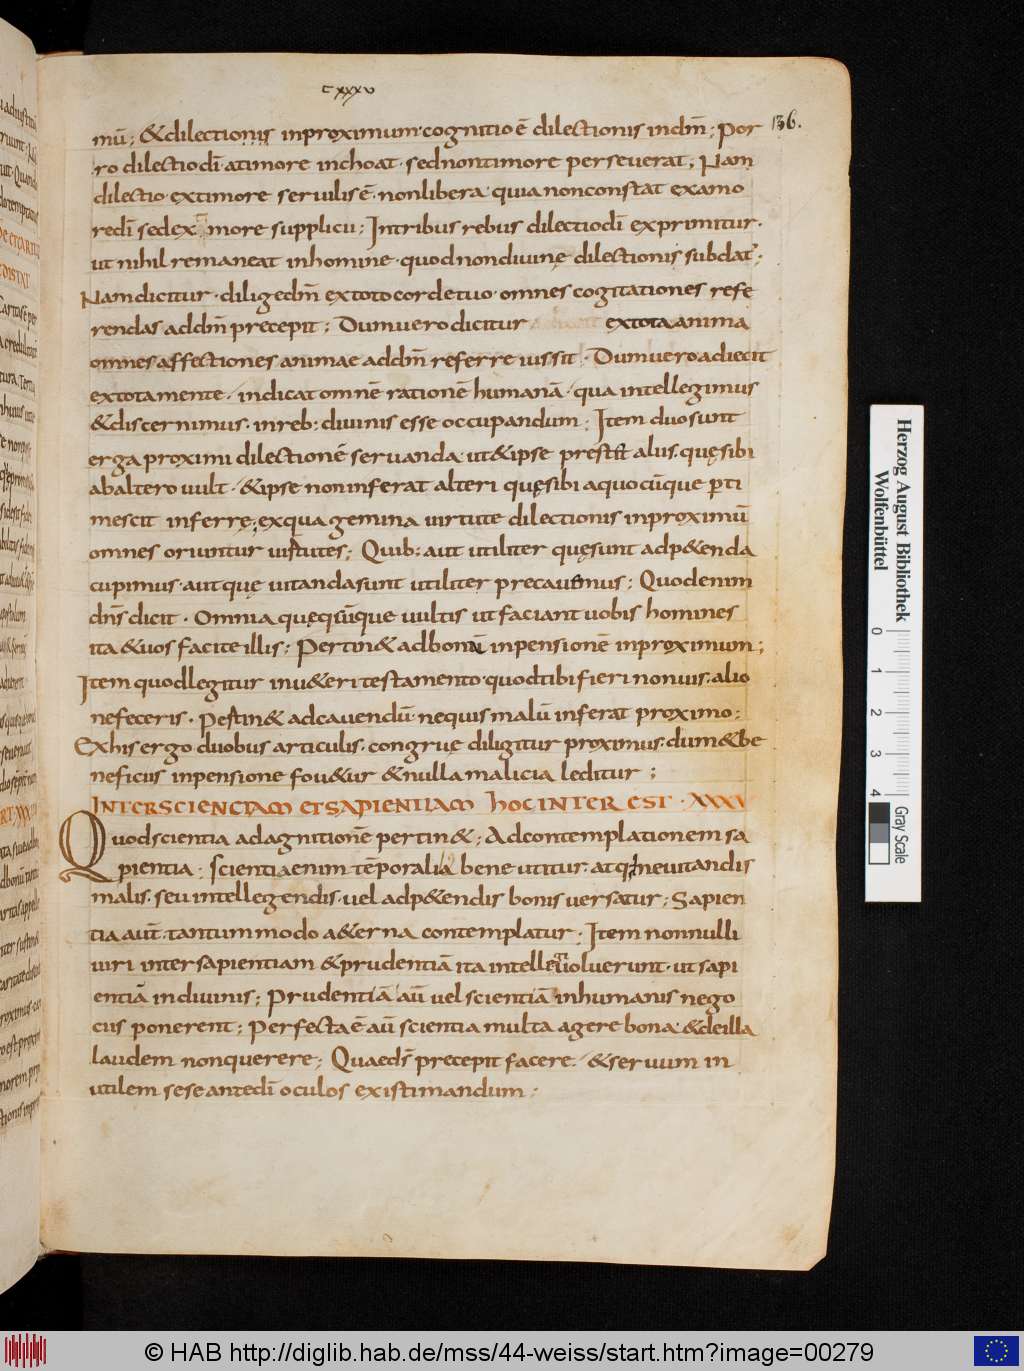 cxxxv
136.
mū; & dilectionis inproximum·cognitio ē dilectionis indm̄; Por
ro dilectio dī·atimore inchoat·sed non timore perseuerat; Nam
dilectio·extimore seruilis ē·non libera·quia non constat ex amo
re dī sed ex more supplicii; In tribus rebus dilectio dī exprimitur·
ut nihil remaneat in homine·quod non diuinę dilectionis subdat᷑;
Nam dicitur·diliges dm̄ ex toto corde tuo·omnes cogitationes refe
rendas ad dm̄ precepit; Dum uero dicitur ex tota anima
omnes affectiones animae ad dm̄ referre iussit· Dum uero adiecit
ex tota mente·indicat omnē rationē humanā·qua intellegimus
& discernimus·in reb: diuinis esse occupandum; Item duo sunt
erga proximi dilectionē seruanda·ut & ipse prest& alus·quę sibi
ab altero uult·& ipse non inferat alteri quę sibi a quocūque p̱ti
mescit inferrę; ex qua gemina uirtute dilectionis in proximū
omnes oriuntur uirtutes; Quib: aut utiliter quę sunt adp&enda
cupimus·aut quę uitanda sunt utiliter precauemus; Quod enim
dn̄s dicit· Omnia quęcūque uultis ut faciant uobis homines
ita & uos facite illis; Pertin& ad bonā inpensionē in proximum;
Item quod legitur in u&eri testamento·quod tibi fieri non uis·alio
ne feceris· Pertin& ad cauendū·ne quis malū inferat proximo;
Ex his ergo duobus articulis·congruę diligitur proximus·dum & be
neficiis inpensione fou&ur & nulla malicia leditur;
INTER SCIENCIAM ET SAPIENTIAM HOC INTEREST· XXXV
Quod scientia ad agnitionē pertin&; Ad contemplationem sa
pientia; Scientia enim tēporalia bene utitur·atq; in euitandis
malis·seu intellegendis·uel adp&endis bonis uersatur; Sapien
tia aut̄·tantummodo a&erna contemplatur· Item nonnulli
uiri inter sapientiam & prudentiā ita intellegi uoluerunt·ut sapi
entiā in diuinis; Prudentiā aū uel scientiā in humanis nego
ciis ponerent; Perfecta ē aū scientia multa agere bona·& de illa
laudem non querere; Quae ds̄ precepit facere·& seruum in
utilem sese ante dī oculos existimandum;
Herzog August Bibliothek
Wolfenbüttel
0 1 2 3 4
Gray Scale
© HAB http://diglib.hab.de/mss/44-weiss/start.htm?image=00279